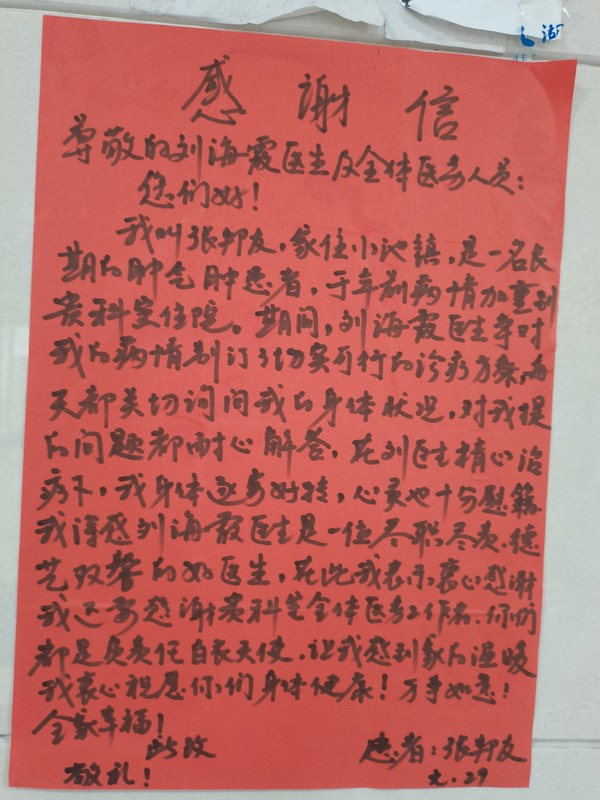 湖
感谢信
尊敬的刘海霞医生及全体医务人员：
您们好！
我叫张邦友，家住小池镇，是一名长
期的肺气肿患者，于年前病情加重到
贵科室住院。期间，刘海霞医生针对
我的病情制订了切实可行的诊疗方案，每
天都关切询问我的身体状况，对我提
的问题都耐心解答，在刘医生精心治
疗下，我身体逐渐好转，心灵也十分慰籍
我深感刘海霞医生是一位尽职尽责、德
艺双馨的好医生，在此我表示衷心感谢
我还要感谢贵科室全体医务工作者、你们
都是负责任白衣天使，让我感到家的温暖
我衷心祝愿你们身体健康！万事如意！
全家幸福！
此致
敬礼！
患者：张邦友
29